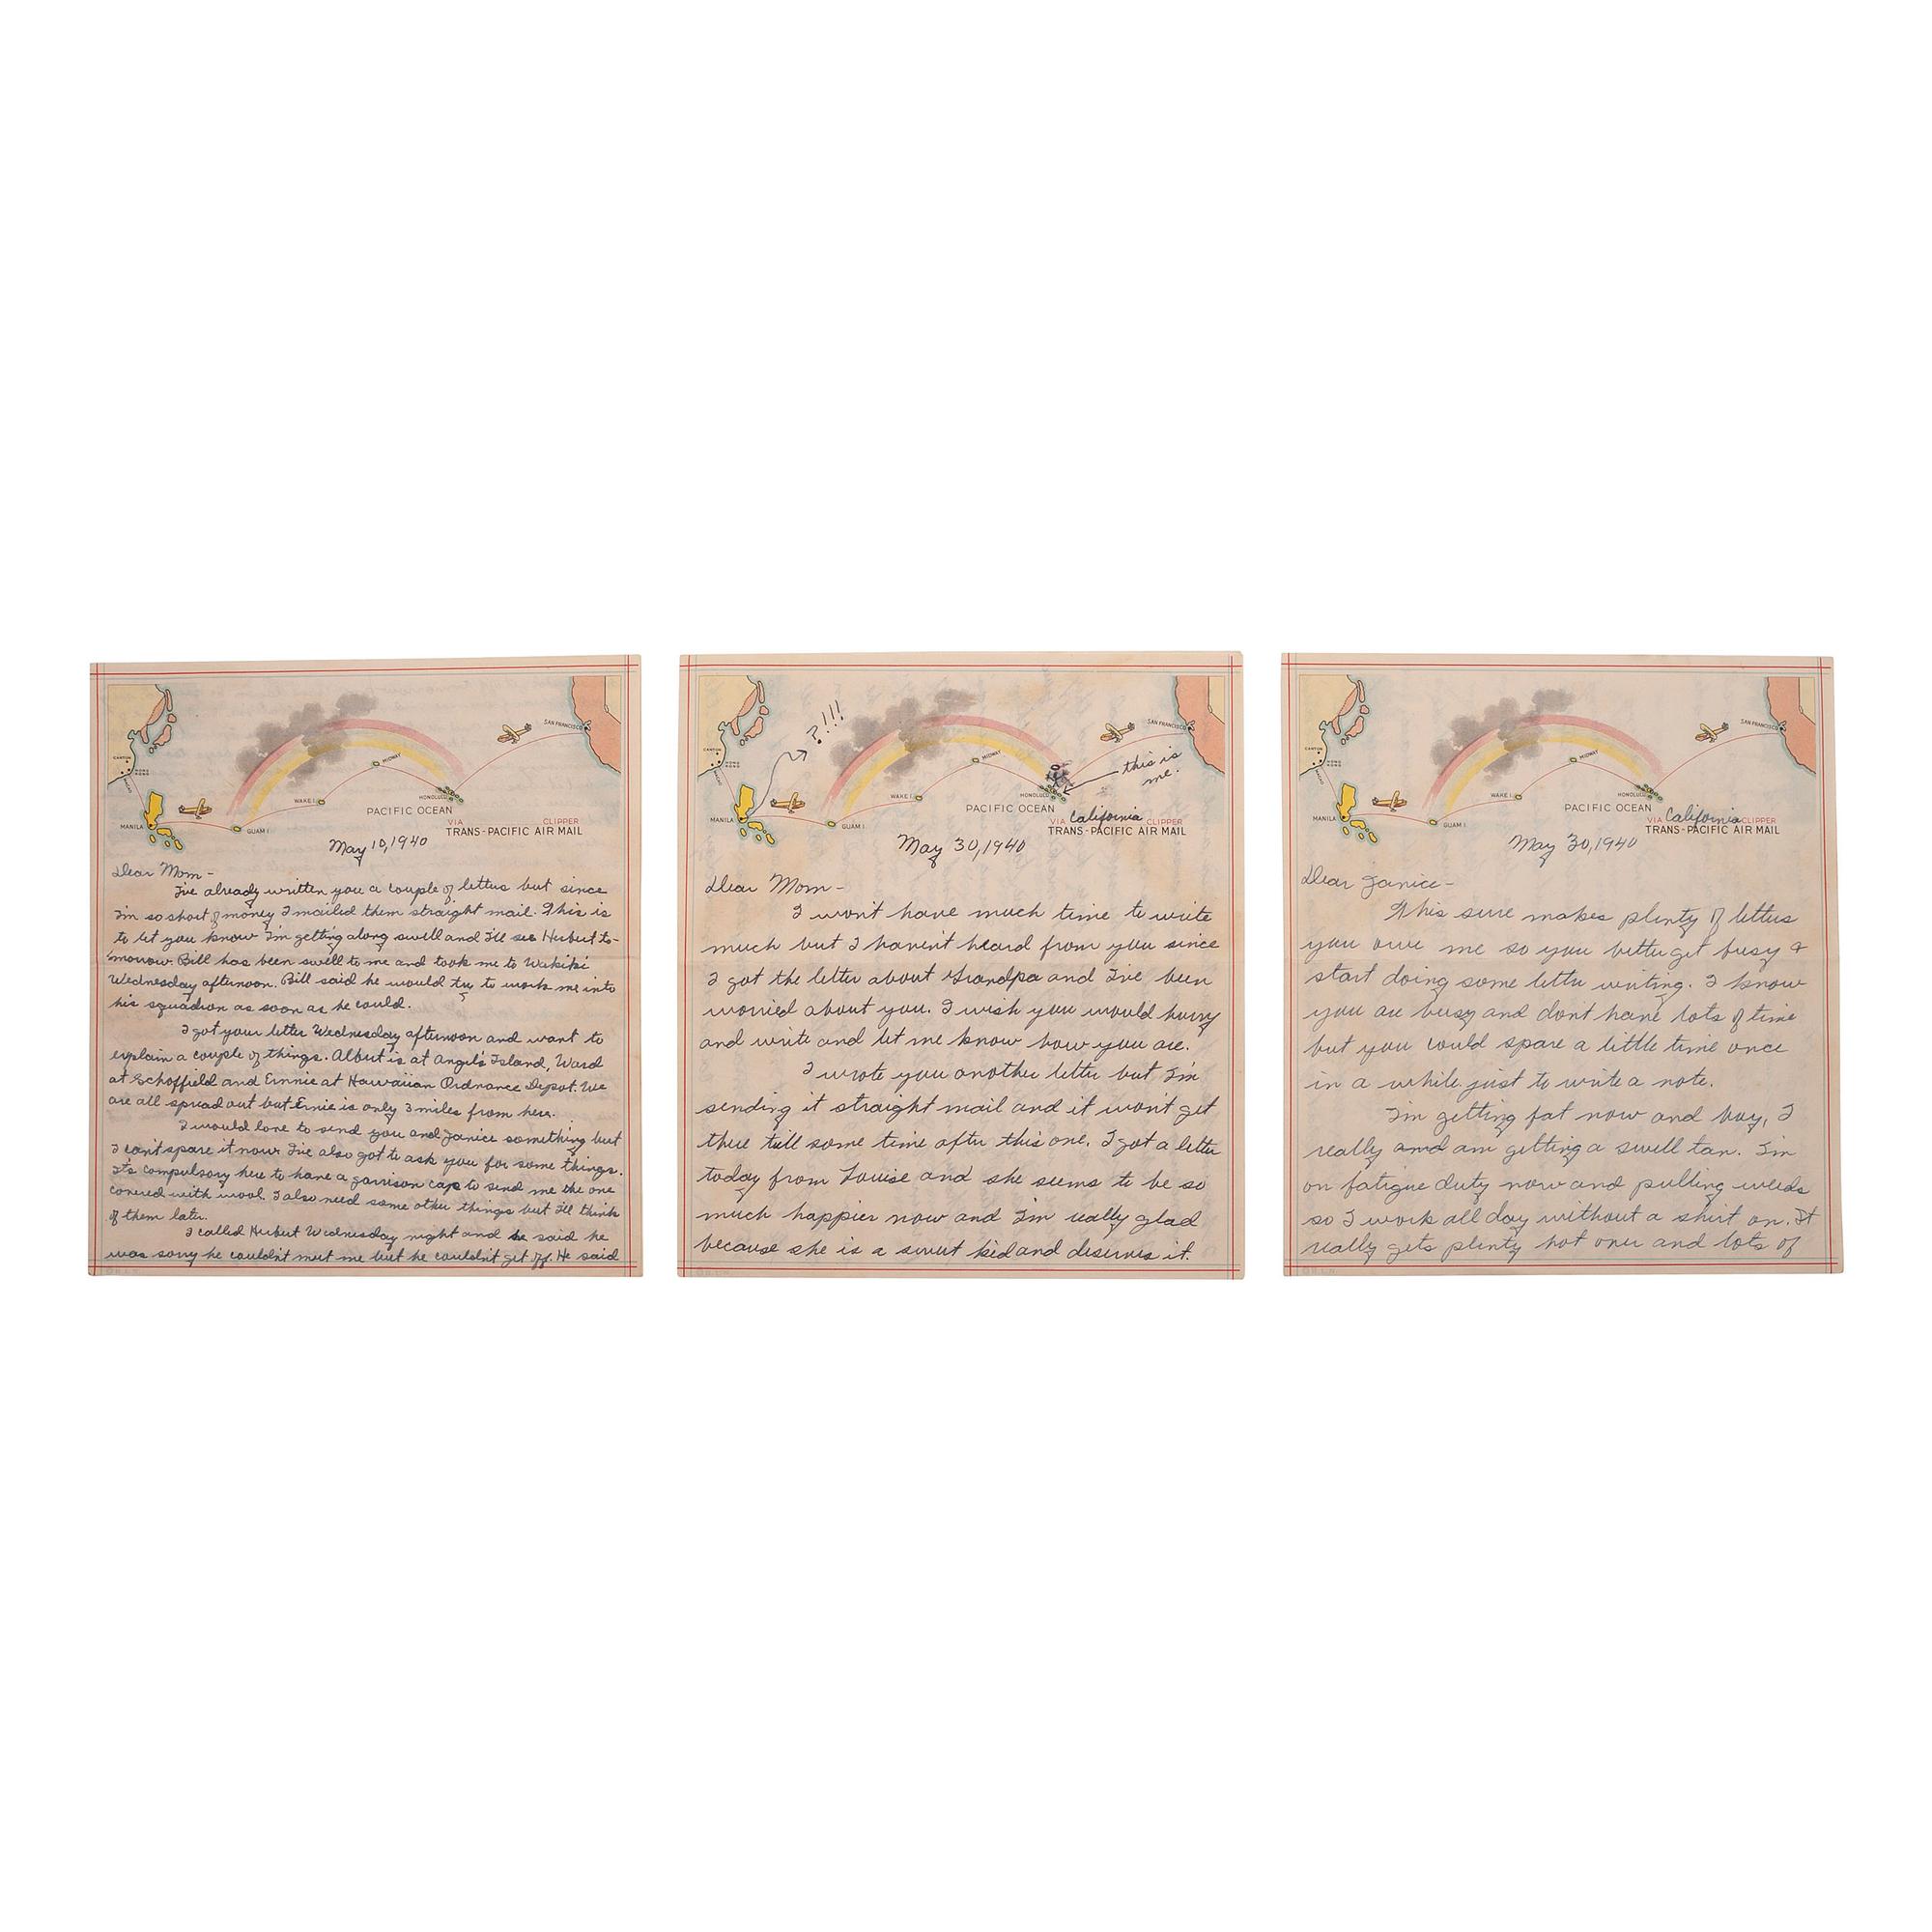 CANTON
HONG KONG
MACAO
MANILA
GUAM I.
WAKE I.
MIDWAY
HONOLULU
SAN FRANCISCO
PACIFIC OCEAN
VIA CLIPPER
TRANS-PACIFIC AIR MAIL
May 10, 1940
Dear Mom -
I've already written you a couple of letters but since
I'm so short of money I mailed them straight mail. This is
to let you know I'm getting along swell and I'll see Herbert to-
morrow. Bill has been swell to me and took me to Wakiki
Wednesday afternoon. Bill said he would try to work me into
his squadron as soon as he could.
I got your letter Wednesday afternoon and want to
explain a couple of things. Albert is at Angel's Island, Ward
at Schoffield and Ernnie at Hawaiian Ordnance Depot. We
are all spread out but Ernie is only 3 miles from here.
I would love to send you and Janice something but
I can't spare it now. I've also got to ask you for some things.
It's compulsory here to have a garrison cap to send me the one
covered with wool. I also need some other things but I'll think
of them later.
I called Herbert Wednesday night and he said he
was sorry he couldn't meet me but he couldn't get off. He said
CANTON
HONG KONG
MACAO
MANILA
GUAM I.
WAKE I.
MIDWAY
HONOLULU
SAN FRANCISCO
?!!!
this is
me.
PACIFIC OCEAN
VIA California CLIPPER
TRANS-PACIFIC AIR MAIL
May 30, 1940
Dear Mom -
I won't have much time to write
much but I haven't heard from you since
I got the letter about Grandpa and I've been
worried about you. I wish you would hurry
and write and let me know how you are.
I wrote you another letter but I'm
sending it straight mail and it won't get
there till some time after this one. I got a letter
today from Louise and she seems to be so
much happier now and I'm really glad
because she is a sweet kid and deserves it.
CANTON
HONG KONG
MACAO
MANILA
GUAM I.
WAKE I.
MIDWAY
HONOLULU
SAN FRANCISCO
PACIFIC OCEAN
VIA California CLIPPER
TRANS-PACIFIC AIR MAIL
May 30, 1940
Dear Janice -
This sure makes plenty of letters
you owe me so you better get busy &
start doing some letter writing. I know
you are busy and don't have lots of time
but you could spare a little time once
in a while just to write a note.
I'm getting fat now and boy, I
really and am getting a swell tan. I'm
on fatigue duty now and pulling weeds
so I work all day without a shirt on. It
really gets plenty hot over and lots of